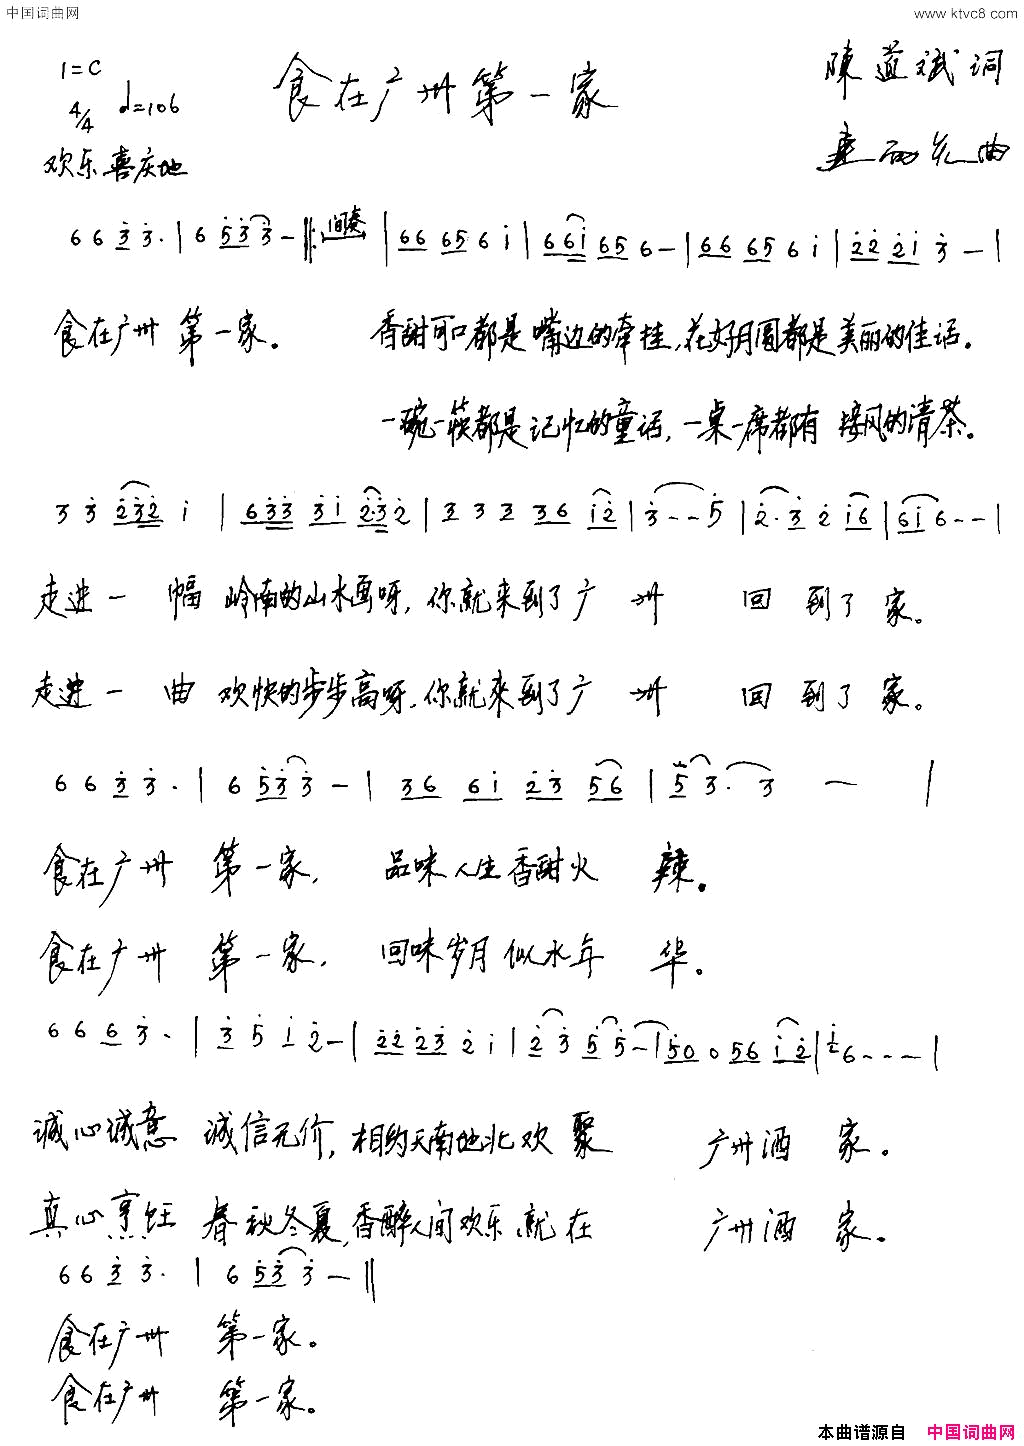 中国词曲网
www.ktvc8.com
1=C
食在广州第一家
陳道斌词
4/4 d=106
欢乐喜庆地
曲
6 6 3 3. | 6 5 3 3 - ‖: 间奏 | 6 6 6 5 6 i | 6 6 i 6 5 6 - | 6 6 6 5 6 i | 2 2 2 i 3 - |
食在广州 第一家。 香甜可口都是嘴边的牵挂,花好月圆都是美丽的佳话。
一碗一筷都是记忆的童话,一桌一席都有 接风的清茶。
3 3 2 3 2 i | 6 3 3 3 i 2·3 2 | 3 3 3 3 6 i 2 | 3 - - 5 | 2·3 2 i 6 | 6 i 6 - - |
走进一 幅 岭南的山水画呀,你就来到了广 州 回 到了 家。
走进一 曲 欢快的步步高呀,你就來到了广 州 回 到了 家。
6 6 3 3 · | 6 5 3 3 - | 3 6 6 i 2 3 5 6 | 5 3 · 3 - |
食在广州 第一家, 品味人生香甜火 辣。
食在广州 第一家, 回味岁月似水年 华。
6 6 6 3 · | 3 5 i 2 - | 2 2 2 3 2 i | 2 3 5 5 - | 5 0 0 5 6 i 2 | i 2 6 - - - |
诚心诚意 诚信无价,相约天南地北欢 聚 广州酒 家。
真心烹饪 春秋冬夏,香醉人间欢乐就在 广州酒 家。
6 6 3 3 · | 6 5 3 3 - ‖
食在广州 第一家。
食在广州 第一家。
本曲谱源自 中国词曲网